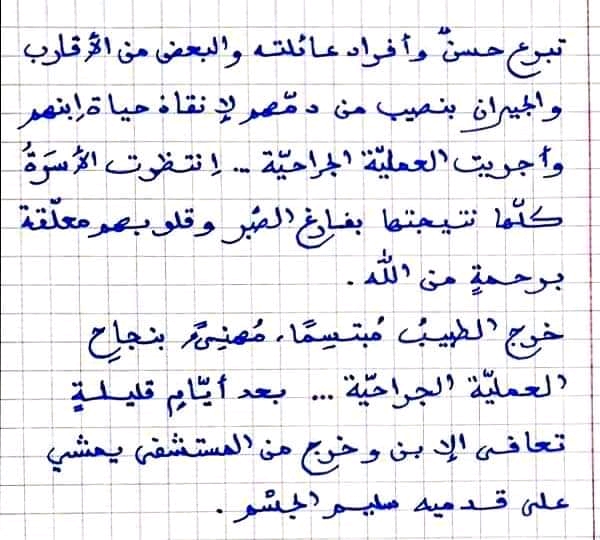 تبرع حسنٌ وأفراد عائلته والبعض من الأقارب
والجيران بنصيب من دمّهم لإنقاذ حياة إبنهم
وأجريت العمليّة الجراحيّة ... إنتظرت الأسرَةُ
كلّها نتيجتها بفارغ الصّبر وقلوبهم معلّقة
برحمةٍ من الله .
خرج الطبيبُ مُبتسِمًا، مُهنِئًا بنجاحِ
العمليّة الجراحيّة ... بعد أيّامٍ قليلةٍ
تعافى الإبن وخرج من المستشفى يمشي
على قدميه سليم الجسْم .